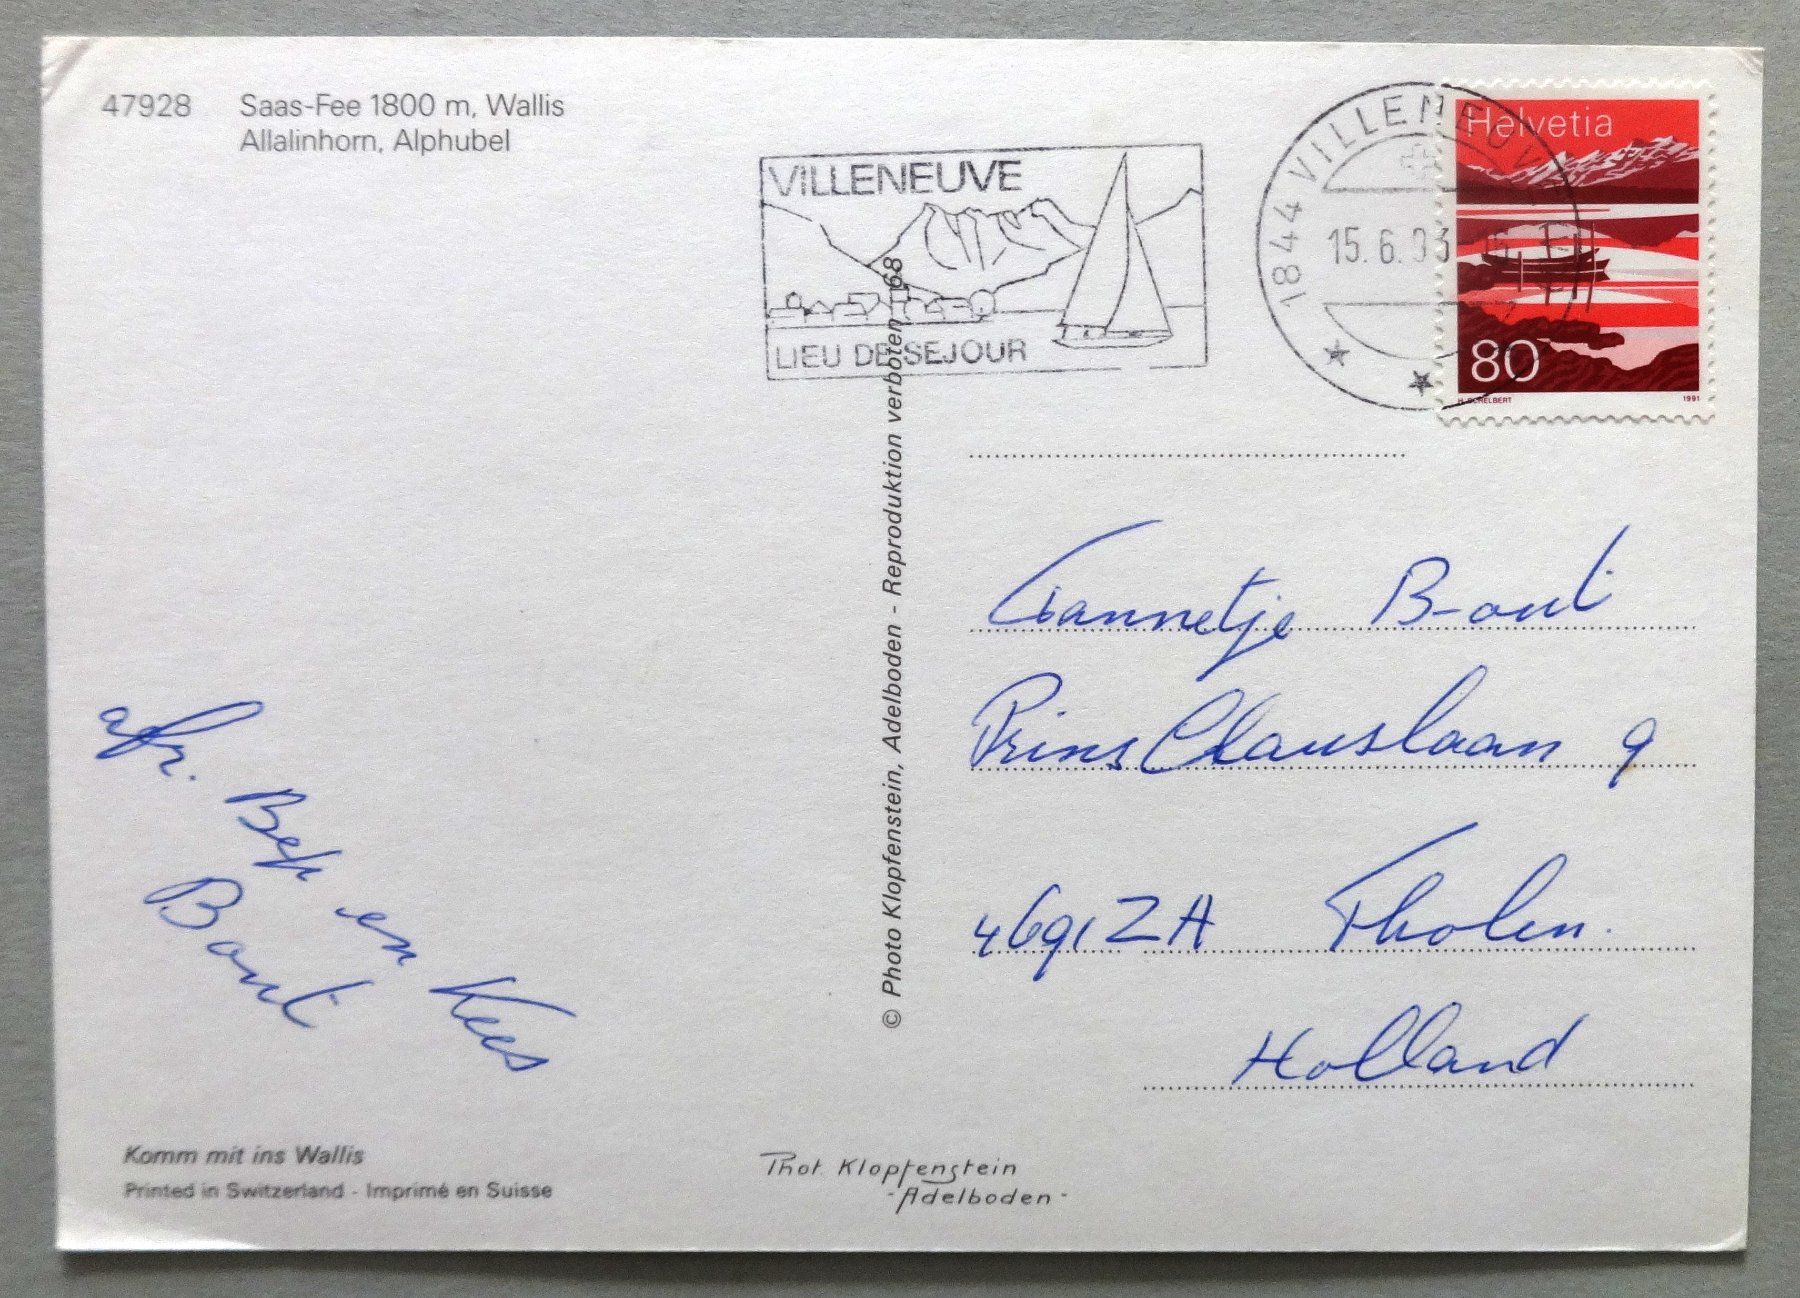 47928 Saas-Fee 1800 m, Wallis
Allalinhorn, Alphubel
VILLENEUVE
LIEU DE SEJOUR
1844 VILLENEUVE
15.6.93
Helvetia
80
H. SCHELBERT 1991
© Photo Klopfenstein, Adelboden - Reproduktion verboten 68
Jannetje Bout
Prins Clauslaan 9
4691ZA Tholen.
Holland
afz. Bep en Kees
Bout
Komm mit ins Wallis
Printed in Switzerland - Imprimé en Suisse
Phot Klopfenstein
- Adelboden -